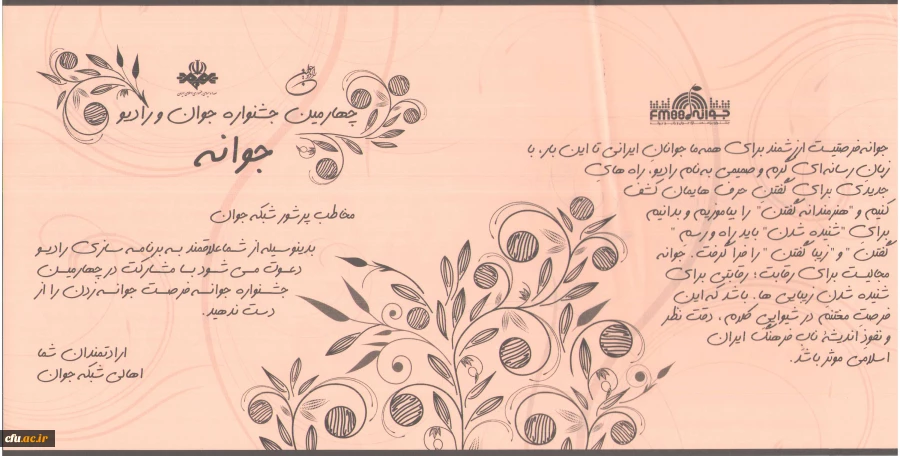 جوانه FM88
جوانه فرصتیست ارزشمند برای همه ما جوانان ایرانی تا این بار، با
زبان رسانه‌ای گرم و صمیمی به نام رادیو، راه های
جدیدی برای گفتن حرف هایمان کشف
کنیم و "هنرمندانه گفتن" را بیاموزیم و بدانیم
برای "شنیده شدن" باید راه و رسم "
گفتن" و "زیبا گفتن" را فرا گرفت. جوانه
مجالیست برای رقابت؛ رقابتی برای
شنیده شدن زیبایی ها. باشد که این
فرصت مغتنم در شیوایی کلام، دقت نظر
و نفوذ اندیشهٔ ناب فرهنگ ایران
اسلامی موثر باشد.
چهارمین جشنواره جوان و رادیو
جوانه
مخاطب پرشور شبکه جوان
بدینوسیله از شما علاقمند به برنامه سازی رادیو
دعوت می شود با مشارکت در چهارمین
جشنواره جوانه فرصت جوانه زدن را از
دست ندهید.
ارادتمندان شما
اهالی شبکه جوان
cfu.ac.ir